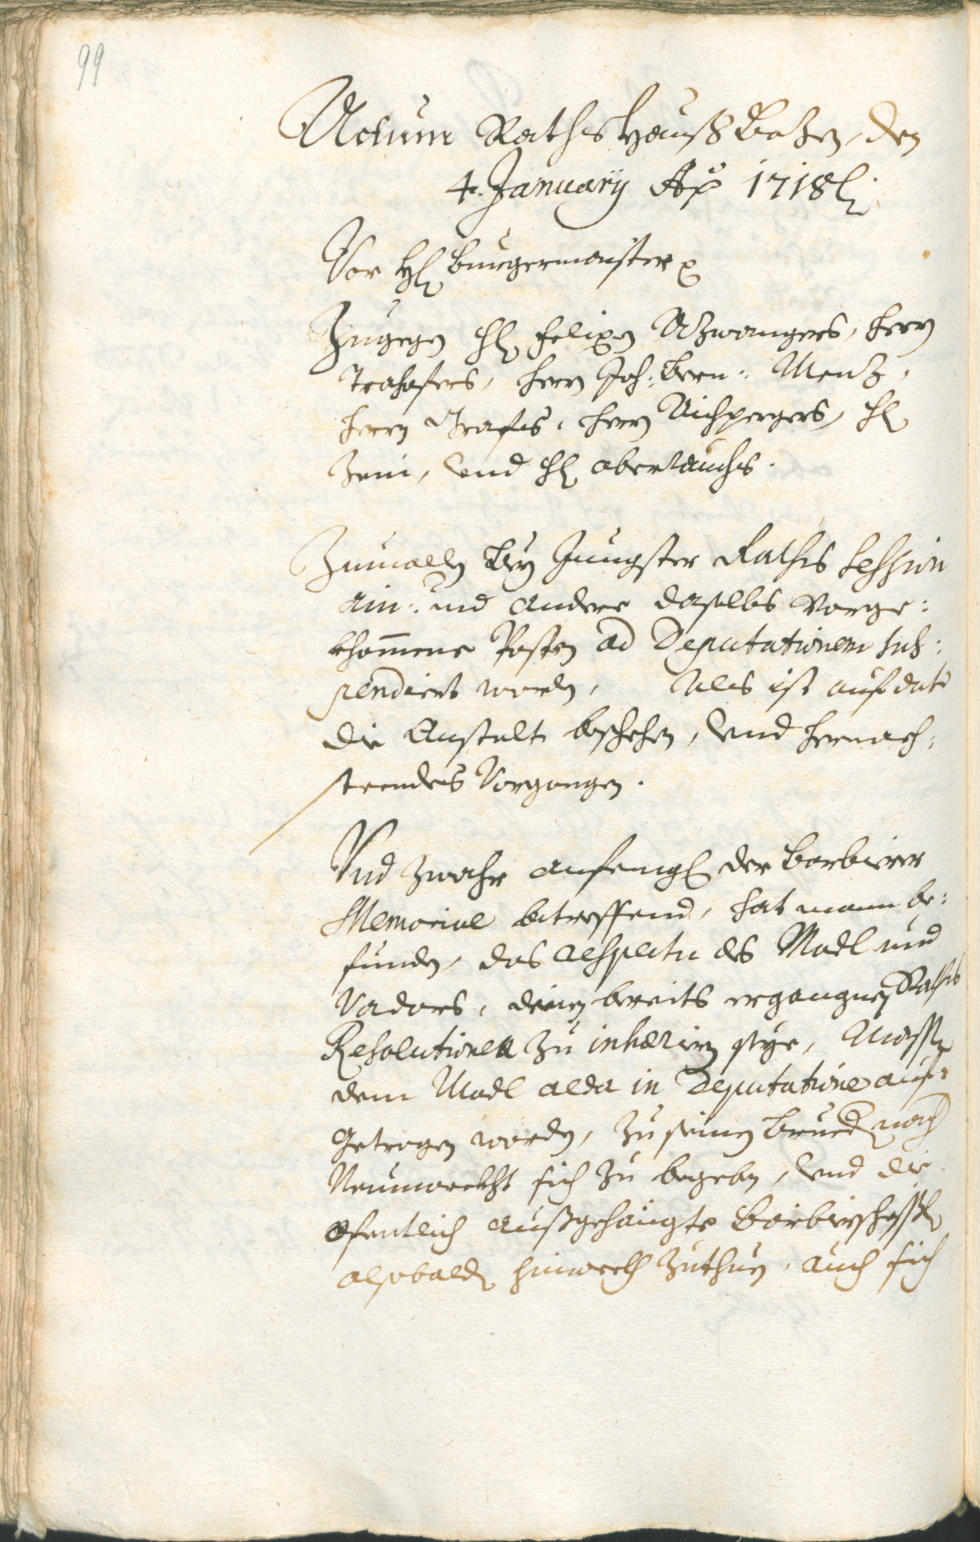 99
Actum Rathshauß Botzen, den
4. January Ao 1718
Vor H: Burgermaister
Zugegen H: Felixen Atzwangers, Herrn
Trahofers, Herrn Joh: Bern: Mentz,
Herrn Grafens, Herrn Aichpergers, H:
Zeni, und H: Oberrauchs.
Zumallen bey Jüngster Raths Session
ain: und andere daselbs vorge:
khomene Posten ad Deputationem sus:
pendiert worden, Als ist auf dato
die Anstalt beschehen, und hernach:
stendes Vorgangen.
Und zwahr anfengl: der Barbierer
Memorial betreffend, hat mann be:
funden, das respectu des Madl und
Vadors, denen bereits ergangnen Raths
Resolutionen zu inhæriren seye, Massen
dem Madl alda in Deputatione auf:
getragen worden, zu seinem Brued nach
Neumarckht sich zu begeben, und die
ofentlich außgehängte Barbierschissl
alsobalden hinweckh zuthuen, auch sich